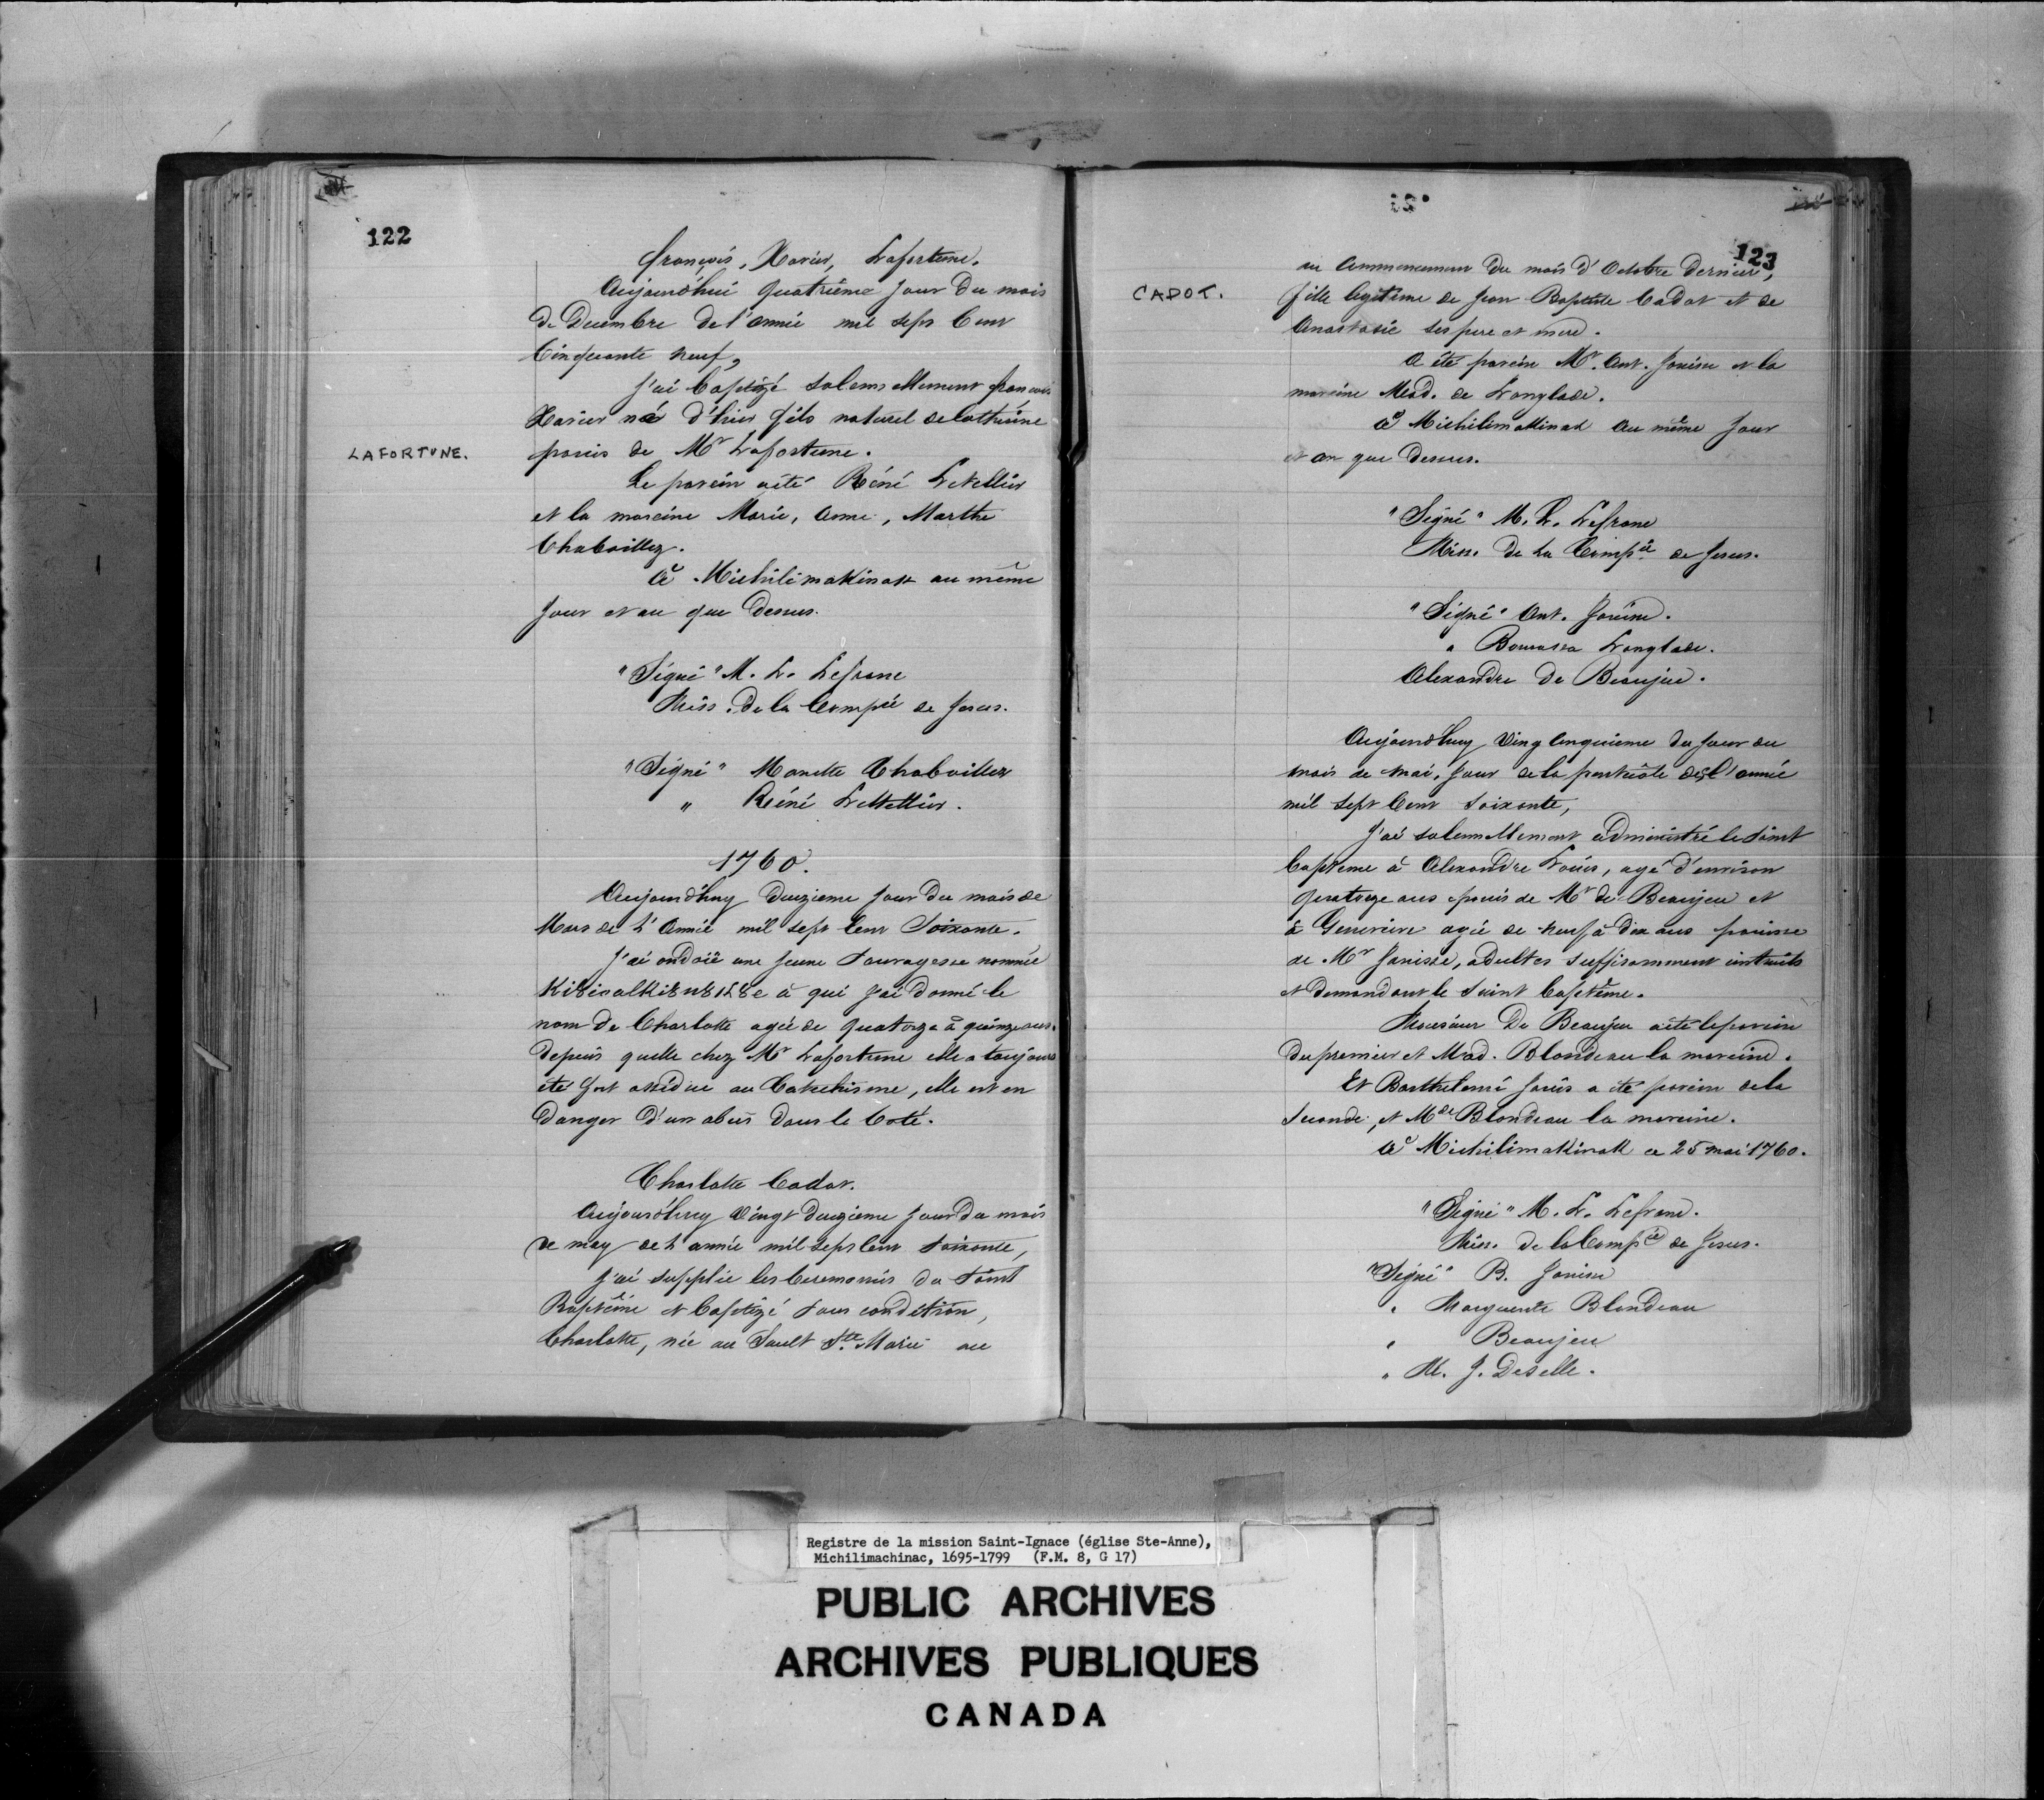 122
françois, Xavier, Lafortune.
Aujourd'hui quatrième jour du mois
de Decembre de l'année mil sept Cent
Cinquante neuf,
J'ai baptizé solemnellement françois
Xavier né d'hier fils naturel de Catherine
panis de Mr Lafortune.
LAFORTUNE.
Le parein a été Réné Letellier
et la mareine Marie, Anne, Marthe
Chaboillez.
à Michilimakinak au même
jour et an que dessus.
"Signé" M. L. Lefranc
Miss. de la Compie de Jesus.
"Signé" Manette Chaboillez
" Réné Letellier.
1760.
Aujourd'huy Douzieme jour du mois de
Mars de L'Année mil sept Cent Soixante.
J'ai ondoié une jeune Sauvagesse nommée
à qui j'ai donné le
nom de Charlotte agée de quatorze à quinze ans.
depuis quelle chez Mr Lafortune elle a toujours
été fort assidue au Catechisme, elle est en
danger d'un abcis dans le Coté.
Charlotte Cadot.
Aujourd'huy Vingt Deuzieme jour du mois
de may de L'année mil sept Cent Soixante,
j'ai supplié les Ceremonies du Saint
Baptême et baptizé sous condition,
Charlotte, née au Sault Ste. Marie au
123
au Commencement du mois d'Octobre Dernier,
CADOT.
fille legitime de Jean Baptiste Cadot et de
Anastasie ses pere et mere.
A été parein Mr. Ant. Janisse et la
mareine Mad. de Langlade.
à Michilimakinak au même jour
et an que dessus.
"Signé" M. L. Lefranc
Miss. de La Compie de Jesus.
"Signé" Ant. Janise.
" Bourassa Langlade.
Alexandre De Beaujeu.
Aujourd'huy Ving Cinquieme du jour du
mois de mai, jour de la pentecôte de l'année
mil sept Cent soixante,
J'ai solemnellement administré le saint
baptême à Alexandre Louis, agé d'environ
quatorze ans panis de Mr de Beaujeu et
à Genevieve agée de neuf à dix ans panisse
de Mr Janisse, adultes suffisamment instruits
et demandant le saint baptême.
Monsieur De Beaujeu a été le parein
du premier et Mad. Blondeau la mareine.
Et Barthelemi Janis a été parein de la
seconde, et Mde Blondeau la mareine.
à Michilimakinak ce 25 mai 1760.
"Signé" M. L. Lefranc.
Miss. de la Compie de Jesus.
"Signé" B. Janise
" Marguerite Blondeau
" Beaujeu
" M. J. Deselle.
Registre de la mission Saint-Ignace (église Ste-Anne),
Michilimachinac, 1695-1799 (F.M. 8, G 17)
PUBLIC ARCHIVES
ARCHIVES PUBLIQUES
CANADA